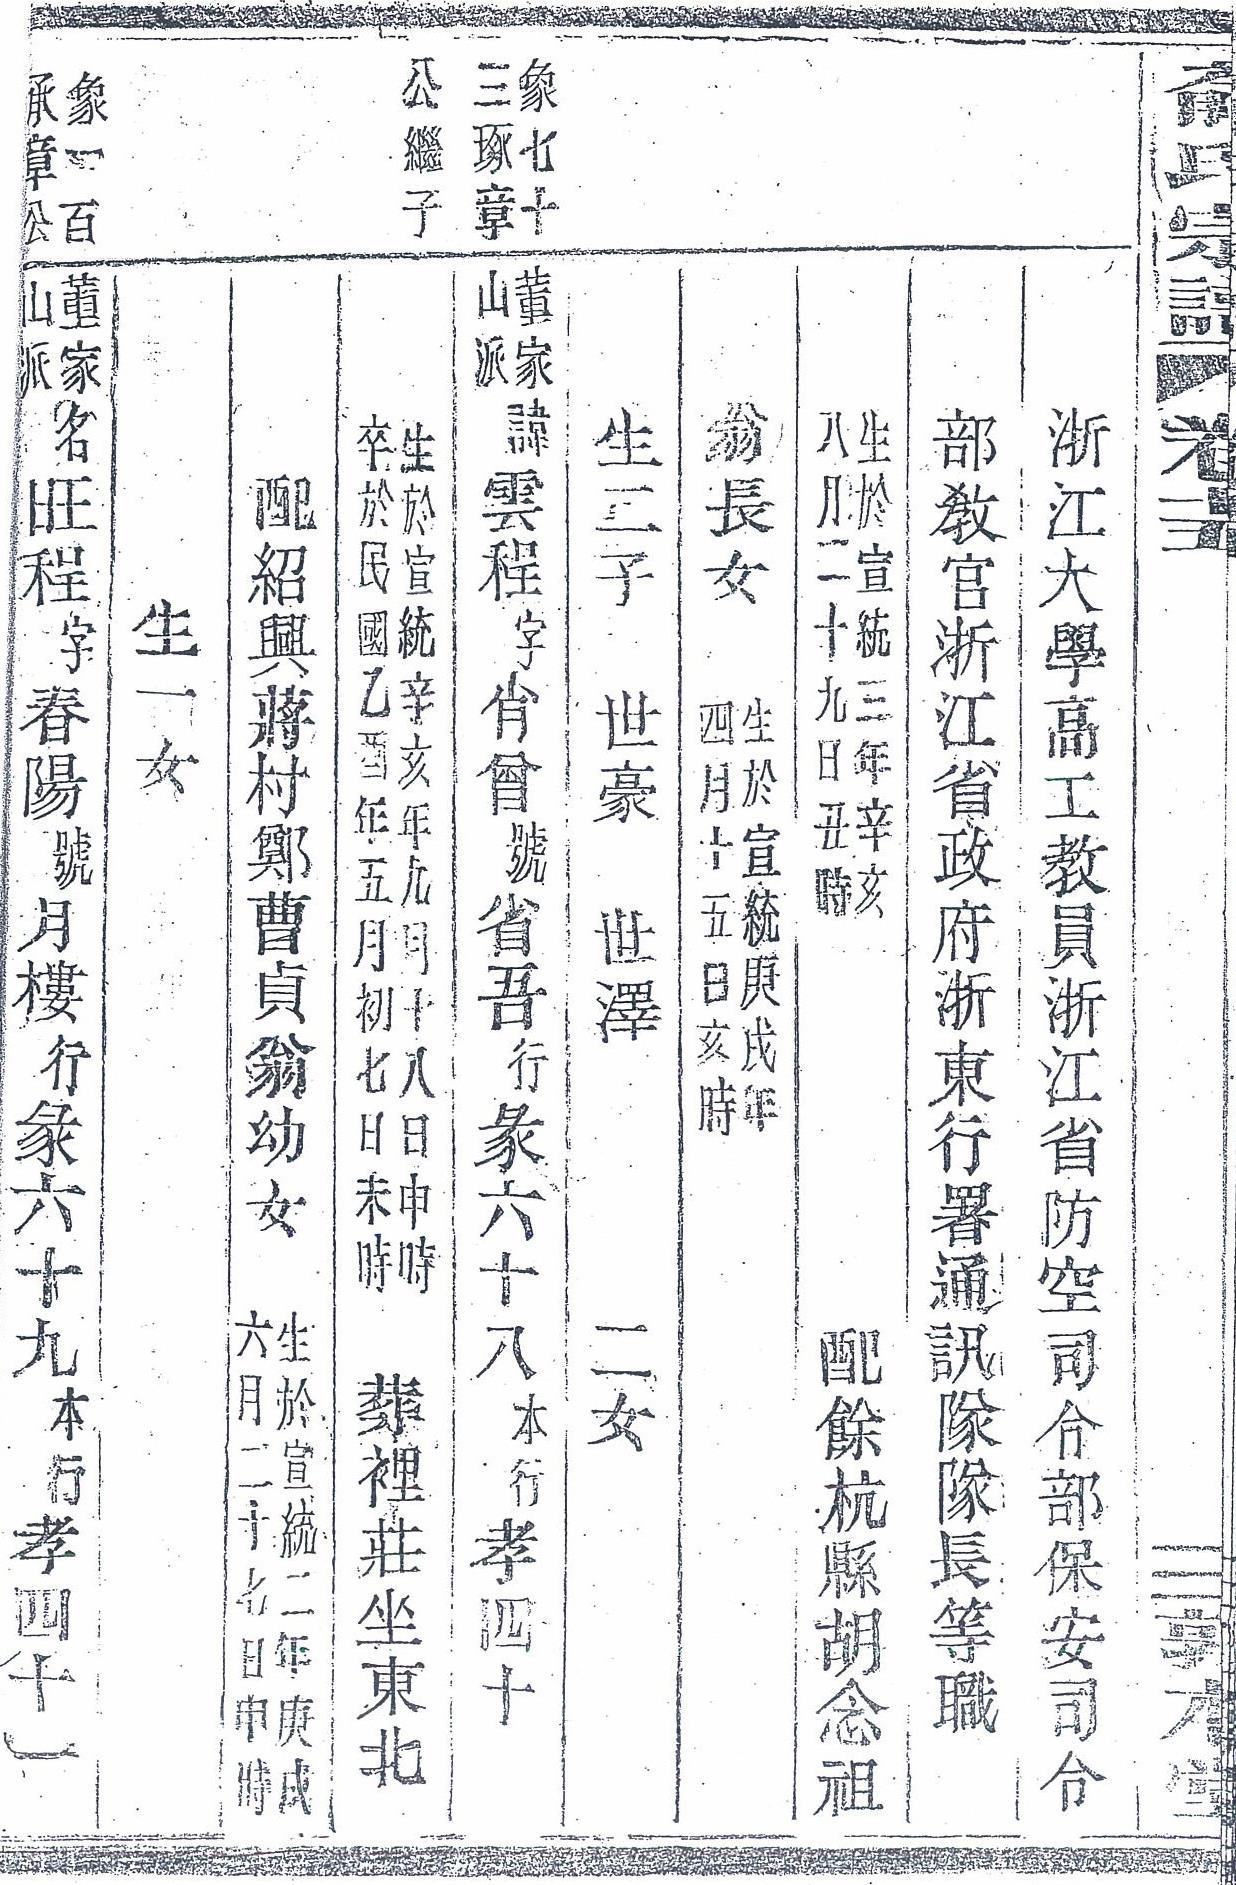 氏宗譜 卷五
浙江大學高工教員浙江省防空司令部保安司令
部教官浙江省政府浙東行署通訊隊隊長等職
生於宣統三年辛亥
八月二十九日丑時
配餘杭縣胡念祖
翁長女
生於宣統庚戌年
四月十五日亥時
生二子 世豪 世澤 二女
象七十
三琢章
公繼子
董家
山派
諱雲程字肖曾號省吾行彖六十八本行孝四十
生於宣統辛亥年九月十八日申時
卒於民國乙酉年五月初七日未時
葬裡莊坐東北
配紹興蔣村鄭曹貞翁幼女
生於宣統二年庚戌
六月二十七日申時
生一女
象一百
承章公
董家
山派
名旺程字春陽號月樓行彖六十九本行孝四十一